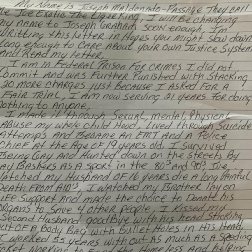 My name is Joseph Maldonado-Passage They call
me Joe Exotic The Tiger King, I will be changing
my name to Joseph soon enough. I'm
writting this letter in hopes you might slow down
long enough to care about your own Justice System
and Read my letter.
I am in Federal Prison for crimes I did not
Commit and was Further Punished with Stacking
so more charges just because I asked For a
Fair Trial. I am now serving 21 years for doing
Nothing to Anyone.
I made it through Sexual, mental, Physical
Abuse my whole child Hood, lived through Suicide
Attempts and Became An EMT and a Police
Chief at the Age of 19 years old. I Survived
Being Gay and Hunted down on the streets By
Gay Bashers As a sport in the 80s and 90s. I've
Watched my Husband of 16 years die a long Painful
Death From AIDS, I watched my Brother lay on
life Support and made the choice to Donate his
Organs to save other People. I kissed my
Second Husband goodbye with his head sticking
out of a Body Bag with Bullet Holes in His Head,
I worked 55 years with out so much as a